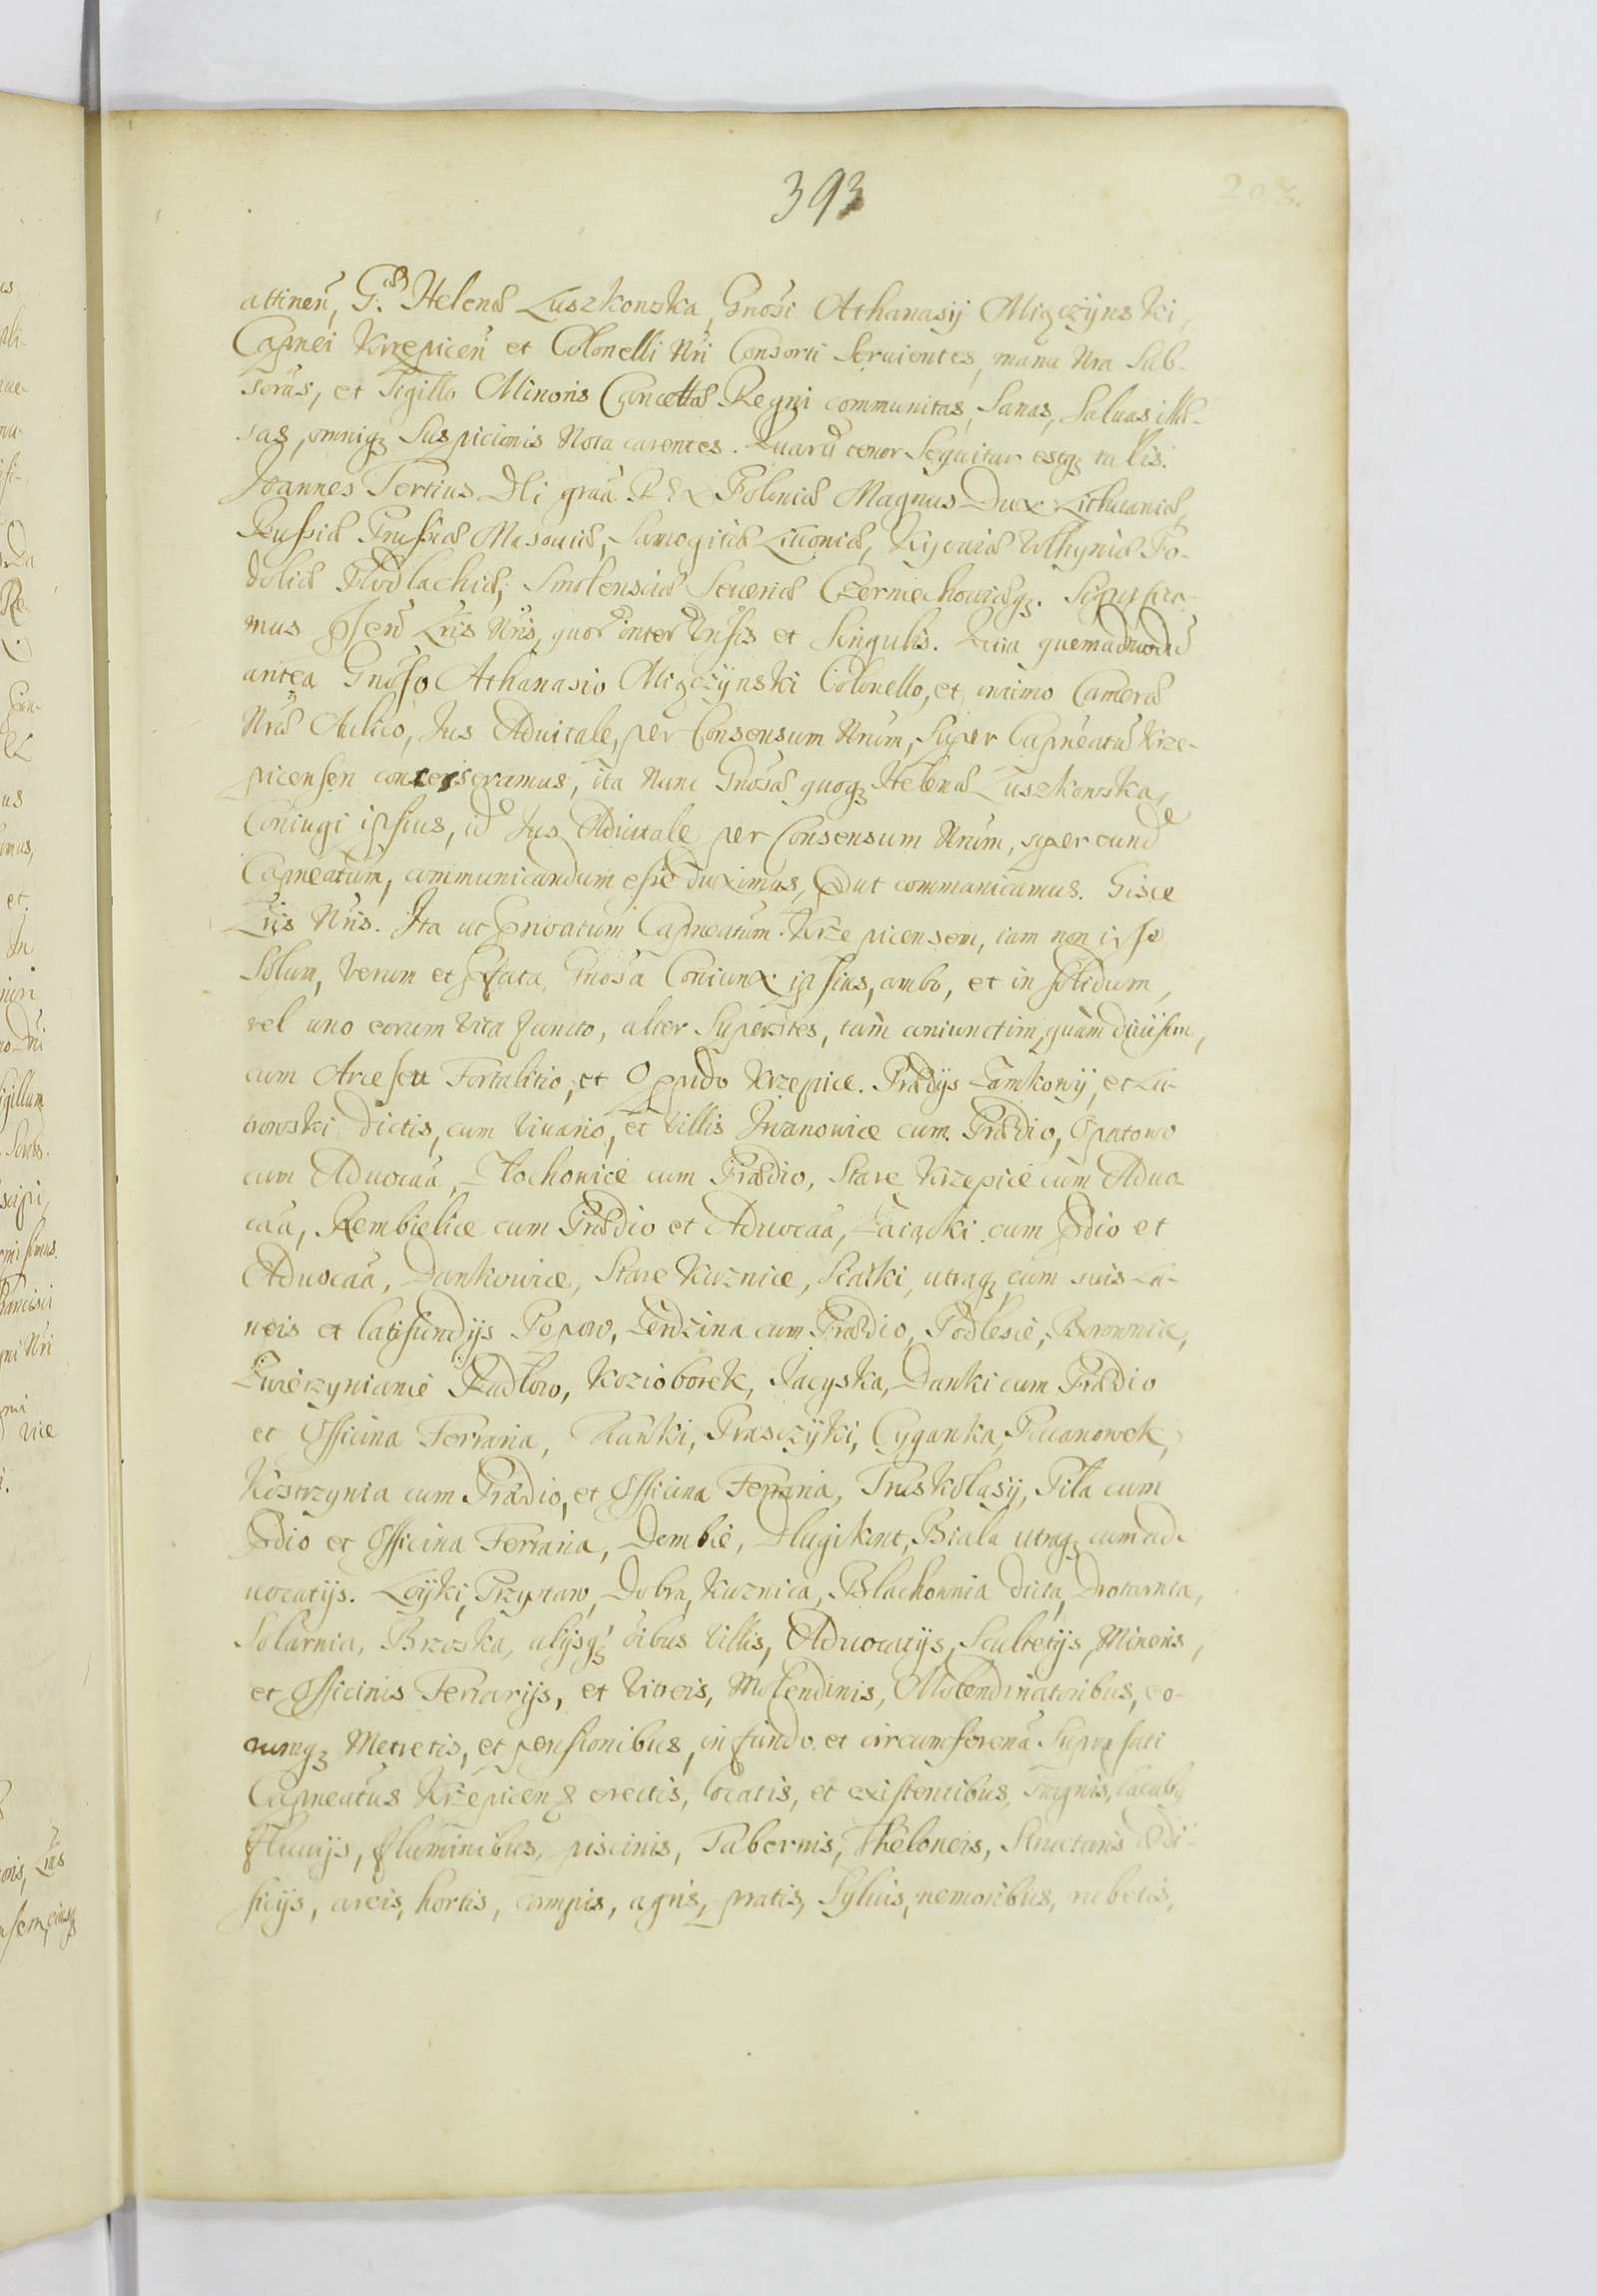 393
203.
attineñ, G. Helenæ Luszkowska, Gnosi Athanasij Miączynski,
Capnei Krzepiceñ et Colonelli Nri Consorti Seruientes, manu Nra Sub-
scrãs, et Sigillo Minoris Cancellæ Regni communitas, Sanas, Saluas, illæ-
sas, omniq₃ Suspicionis Nota carentes. Quarũ tenor Sequitur estq₃ talis.
Joannes Tertius Dei grãa REX Poloniæ Magnus Dux Lithuaniæ,
Russiæ Prussiæ Masouiæ, Samogitiæ Liuoniæ, Kijouiæ Volhyniæ Po-
doliæ Podlachiæ, Smolensciæ Seueriæ Czerniechouiæq₃. Significa-
mus Lris Nris, quorũ interẽ Vnĩsis et Singulis. Quia quemadmodũ
antea Gnoso Athanasio Miączynski Colonello, et intimo Cameræ
Nræ Aulico, Jus Aduitale, per Consensum Nrum, super Capneatũ Krze-
picensem concesseramus, ita Nunc Gnosæ quoq₃ Helenæ Luszkowska,
Coniugi ipsius, id Jus Aduitale per Consensum Nrum, super eundẽ
Capneatum, communicandum esse duximus, communicamus. Hisce
Lris Nris. Ita ut Capneatum Krzepicensem, iam non ipse
Solum, verum et Gnosa Coniunx ipsius, ambo, et in solidum,
vel uno eorum vita functo, alter Superstes, tam coniunctim, quam diuisim,
cum Arce seu Fortalitio, et Oppido Krzepice. Prædijs Zamkowy, et Ku-
trowski dictis, cum Viuario, et Villis Iwanowice cum Prædio, Opatowo
cum Aduocaã, Złochowice cum Prædio, Stare Krzepice cum Aduo
caã, Rembielice cum Prædio et Aduocaã, Zaiączki cum Pdio et
Aduocaã, Dankowice, Stare Kuznice, Szarki, utraq₃ cum suis La-
neis et latifundijs Popow, Zendzina cum Prædio, Podlesie, Borownia,
Zwierzynianie Kudłow, Kozioborek, Jacyska, Danki cum Prædio
et Officina Ferraria, Kawki, Praszczyki, Cyganka, Piwanowek,
Kostrzynia cum Prædio, et Officina Ferraria, Truskolasy, Piła cum
Pdio et Officina Ferraria, Dembie, Długi Kąt, Biała utraq₃ cum ad-
uocatijs. Łoyki, Przystaw, Dobra, Kuznica, Blachownia dicta, Drotarnia,
Solarnia, Brzozka, alijsq₃ oibus Villis, Aduocatijs, Scultetijs, Mineris,
et Officinis Ferrarijs, et Vitreis, Molendinis, Molendinatoribus, eo-
rumq₃ Metretis, et pensionibus, in fundo et circumferena
Capneatus Krzepicens erectis, locatis, et existentibus, stagnis, lacub₉
fluuijs, fluminibus, piscinis, Tabernis, Theloneis, Structuris Ædi-
ficijs, areis, hortis, campis, agris, pratis, Syluis, nemoribus, rubetis,